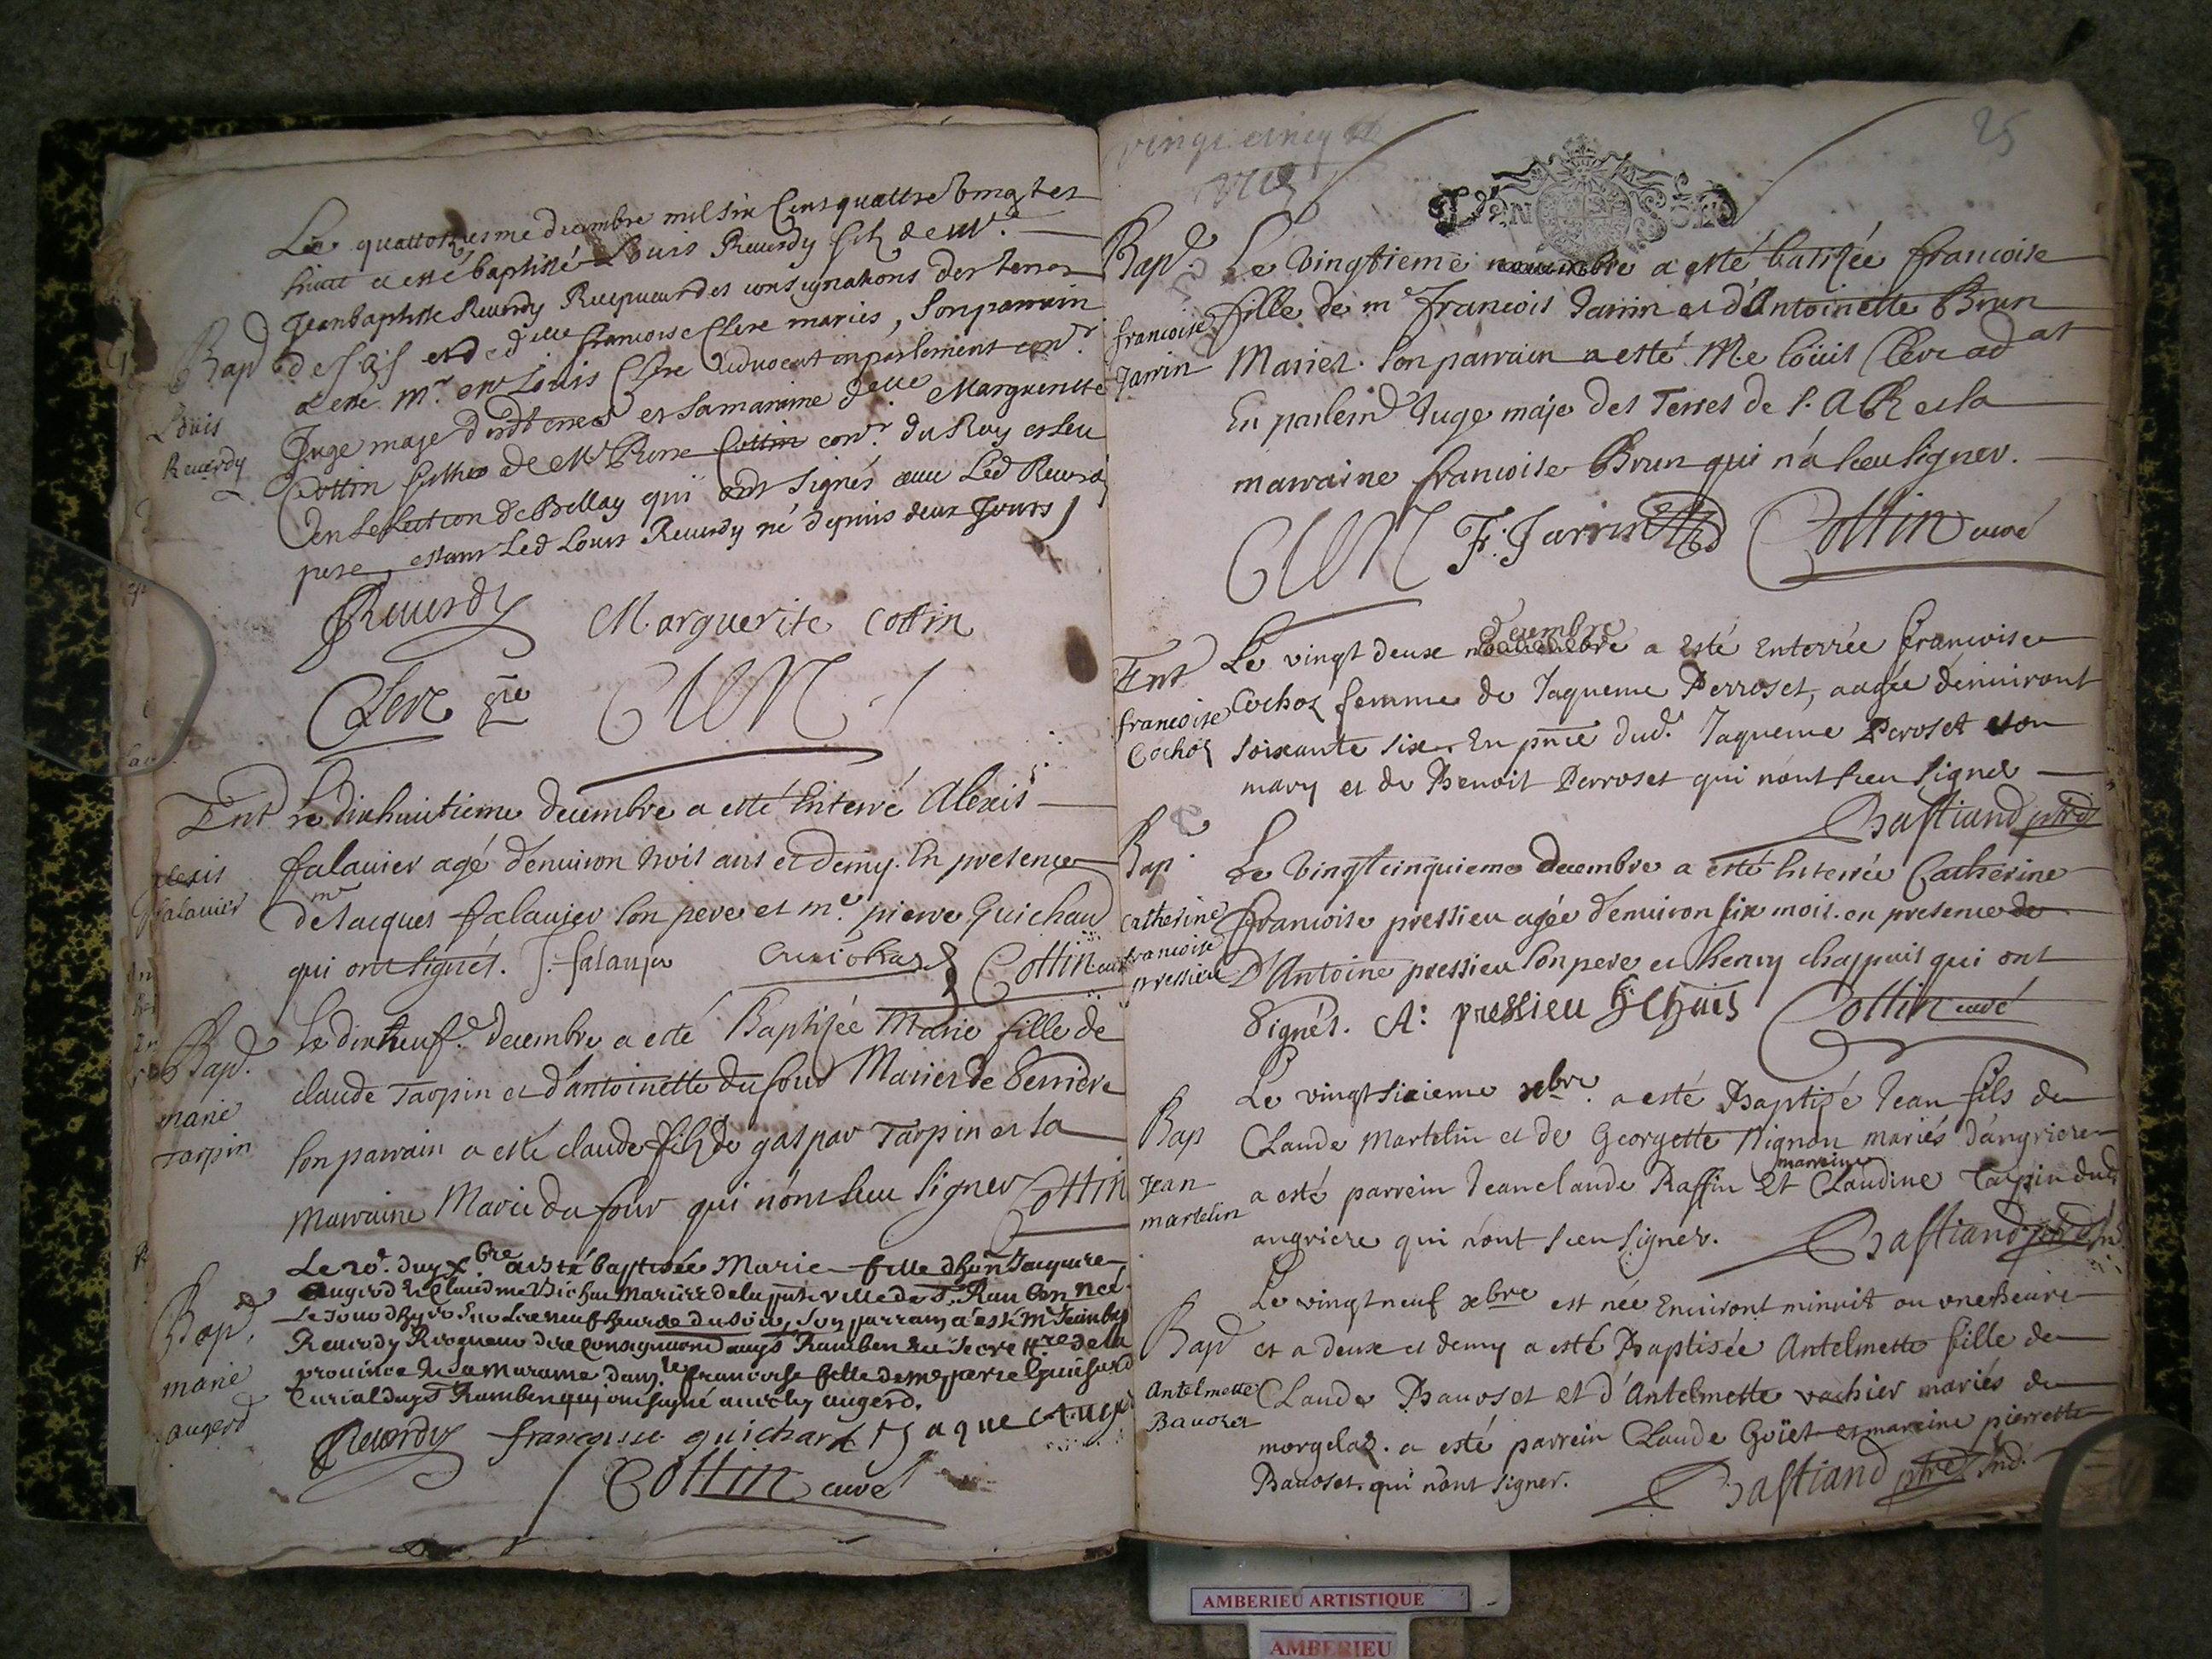 Le quattorzesme decembre mil six Cens quattre vingtes
huict a esté baptissé Louis Reuerdy filz de Mr.
Jean baptiste Reuerdy Recepueur des consignations des terres
Bapd de S A S et de dlle francoise Clerc mariés, Son parrain
a esté Mr. Mr Louis Clerc Advocat en parlement conr.
Louis
Reuerdy
Juge maje desd terres et sa maraine dlle Margueritte
Cottin de Mr Pierre Cottin conr. du Roy esleu
en Leslection de Bellay qui ont signés auec Led Reuerdy
pere, estant Led Louis Reuerdy né depuis deux Jours
Reuerdy Marguerite Cottin
Clerc
Ent Le dixhuitieme decembre a esté Enterré Alexis
alexis
falauier
falauier agé d'enuiron trois ans et demy. En presence
de mr Jacques falauier son pere et me. pierre Guichard
qui ont signés. J. falauier Guichard Cottin curé
Bapd.
marie
Tarpin
Le dixneufe. decembre a esté Baptisée Marie fille de
claude Tarpin et d'antoinette du four Mariés de
son parrain a esté claude filz de gaspar Tarpin et sa
marraine Marie du four qui n'ont sceu signer Cottin
Bapd.
marie
augerd
Le 20e. duy Xbre a esté baptisée Marie fille dhon Jacques
Augerd et Claudine mariés de la pnte ville de St. Rambert née
Le Jour dhyer neuf heures du soir, Son parrain a esté Mr Jean bap
Reuerdy Receueur des Consignations St Rambert Secrettre de la
prouince et sa maraine dam.lle francoise fille de me pierre Guichard
Curial duyt St Rambert quj ont signé auec luy augerd.
Reuerdy francoisse guichard Jaque Augerd
Cottin curé
25
vingt cincq
VAN SOLS
Bapd.
francoise
Jarrin
Le vingtieme nouembre a esté batisée francoise
fille de me francois Jarrin et d'Antoinette Brun
Mariez. son parrain a esté M.e loüis Clerc adat
En parlemd Juge maje des Terres de S. A R et la
marraine francoise Brun qui n'a sceu signer.
F. Jarrin Cottin curé
Ent
francoise
Cochoz
decembre
Le vingt deux nouembre a esté Enterrée francoise
Cochoz femme de Jaqueme Perroset, aagée d'enuiront
soixante six. En pnce dud. Jaqueme Peroset son
mary et de Benoit Perroset qui n'ont sceu signer
Bastiand ptre
Bap.
catherine
francoise
pressieu
Le vingtcinquieme decembre a esté Enterrée Catherine
francoise pressieu agée d'enuiron six mois. en presence de
D'Antoine pressieu son pere et henry chappuis qui ont
signés. A: pressieu Cottin curé
Bap
Jean
martelin
Le vingtsixieme xbre. a esté Baptizé Jean fils de
Claude Martelin et de Georgette Mignon mariés d'angriere
a esté parrein Jeanclaude Raffin Et marreine Claudine Tarpin dud
angriere qui n'ont sceu signer. Bastiand ptre
Bapd
Antelmette
Bauozet
Le vingtneuf xbre est née Enuiront minuit ou vne heure
et a deux et demy a esté Baptisée Antelmette fille de
Claude Bauoset et d'Antelmette vachier mariés de
morgelaz. a esté parrein Claude Goüet et mareine pierrette
Bauoset. qui n'ont signer. Bastiand ptre Ind.
AMBERIEU ARTISTIQUE
AMBERIEU